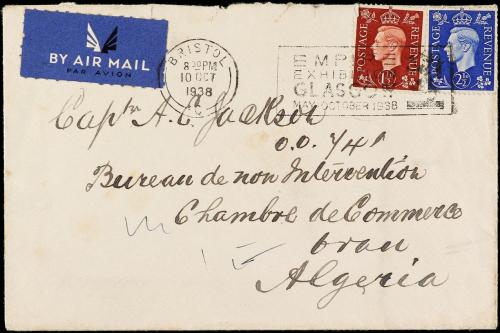 BY AIR MAIL
PAR AVION
BRISTOL
10 OCT
1938
EMPIRE
EXHIBITION
GLASGOW
MAY-OCTOBER 1938
POSTAGE REVENUE
1½D
POSTAGE REVENUE
2½D
Captn A. C. Jackson
O.O. 741
Bureau de non Intervention
Chambre de Commerce
Oran
Algeria